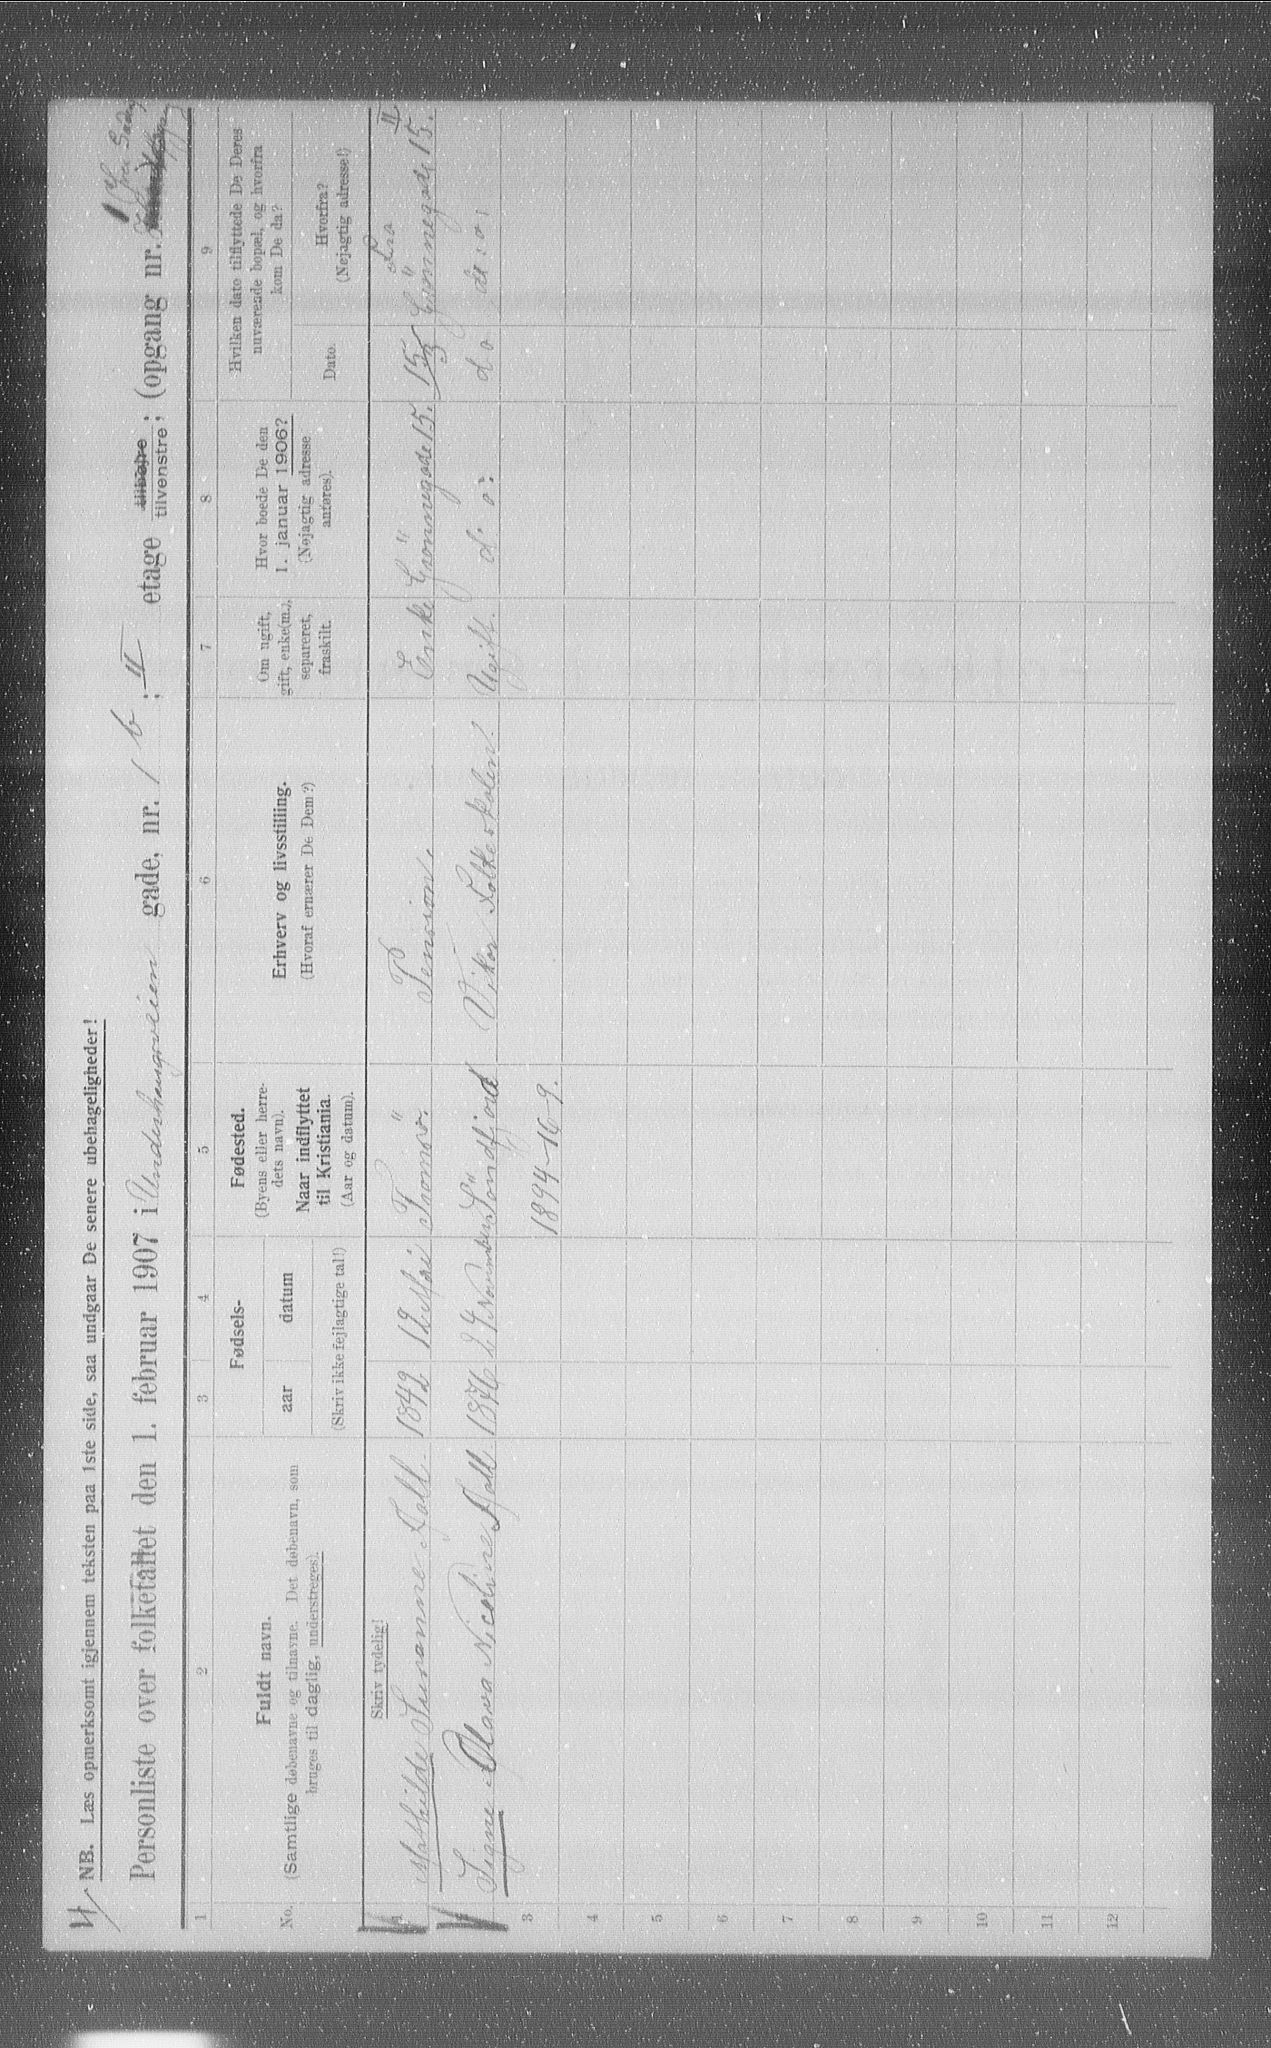 NB. Læs opmerksomt igjennem teksten paa 1ste side, saa undgaar De senere ubehageligheder!
Personliste over folketallet den 1. februar 1907 i Underhaugsveien gade, nr. 1 b ; II etage tilhøjre tilvenstre ; (opgang nr.
1 2 3 4 5 6 7 8 9
No.
Fuldt navn.
(Samtlige døbenavne og tilnavne. Det døbenavn, som
bruges til daglig, understreges).
Fødsels-
aar datum
(Skriv ikke fejlagtige tal!)
Fødested.
(Byens eller herre-
dets navn).
Naar indflyttet
til Kristiania.
(Aar og datum).
Erhverv og livsstilling.
(Hvoraf ernærer De Dem?)
Om ugift,
gift, enke(m.),
separeret,
fraskilt.
Hvor boede De den
1. januar 1906?
(Nøjagtig adresse
anføres).
Hvilken dato tilflyttede De Deres
nuværende bopæl, og hvorfra
kom De da?
Dato.
Hvorfra?
(Nøjagtig adresse!)
Skriv tydelig!
Fra II
1 Mathilde Susanne Holl. 1842 12 Mai Tromsö. Pension. Enke Grönnegade 15. Grönnegade 15.
2 Signe Olava Nicoline Holl 1876 27 November Söndfjord Vikar Folkeskolen. Ugift. d o. do d:o,
1894-16-9.
3
4
5
6
7
8
9
10
11
12